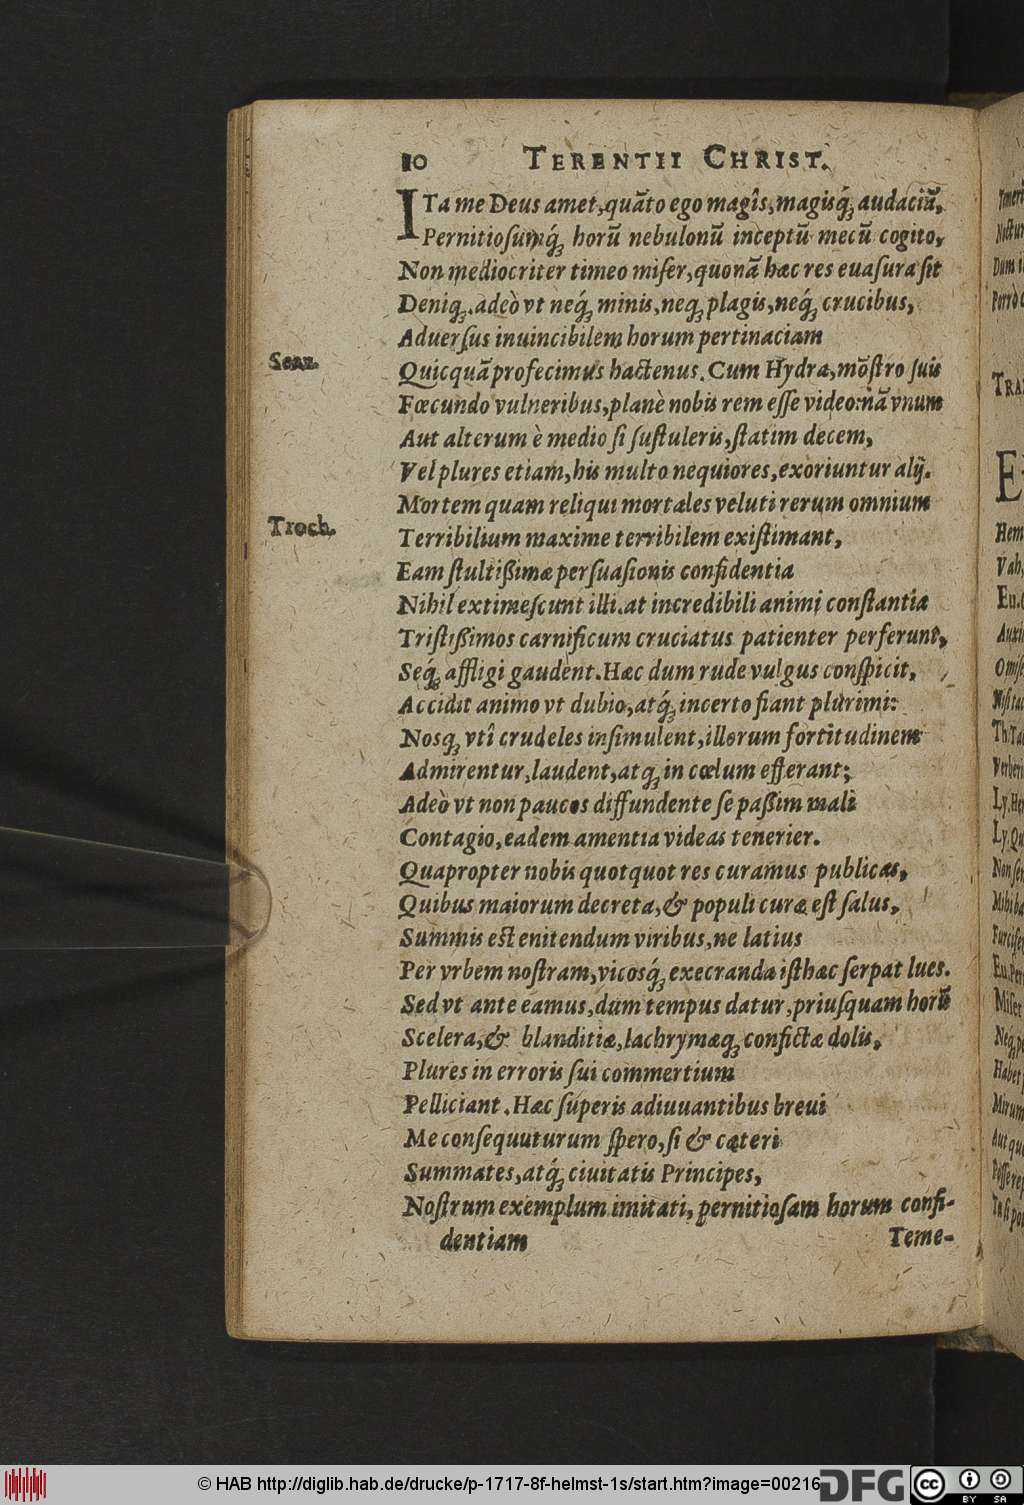 10 TERENTII CHRIST.
ITa me Deus amet, quãto ego magîs, magisq́; audaciã,
Pernitiosumq́; horũ nebulonũ inceptũ mecũ cogito,
Non mediocriter timeo miser, quonã hæc res euasura sit
Deniq;. adeò vt neq́; minis, neq; plagis, neq́; crucibus,
Aduersus inuincibilem horum pertinaciam
Senar.
Quicquã profecimus hactenus. Cum Hydra, mõstro suis
Fœcundo vulneribus, planè nobis rem esse video: nã vnum
Aut alterum è medio si sustuleris, statim decem,
Vel plures etiam, his multo nequiores, exoriuntur alij.
Mortem quam reliqui mortales veluti rerum omnium
Troch.
Terribilium maxime terribilem existimant,
Eam stultißimæ persuasionis confidentia
Nihil extimescunt illi. at incredibili animi constantia
Tristißimos carnificum cruciatus patienter perferunt,
Seq́; affligi gaudent. Hæc dum rude vulgus conspicit,
Accidit animo vt dubio, atq́; incerto fiant plurimi:
Nosq; vtî crudeles insimulent, illorum fortitudinem
Admirentur, laudent, atq; in cœlum efferant;
Adeò vt non paucos diffundente se paßim mali
Contagio, eadem amentia videas tenerier.
Quapropter nobis quotquot res curamus publicas,
Quibus maiorum decreta, & populi curæ est salus,
Summis est enitendum viribus, ne latius
Per vrbem nostram, vicosq́; execranda isthæc serpat lues.
Sed vt ante eamus, dum tempus datur, priusquam horũ
Scelera, & blanditiæ, lachrymæq; confictæ dolis,
Plures in erroris sui commertium
Pelliciant. Hæc superis adiuuantibus breui
Me consequuturum spero, si & cæteri
Summates, atq́; ciuitatis Principes,
Nostrum exemplum imitati, pernitiosam horum confi-
dentiam Teme-
© HAB http://diglib.hab.de/drucke/p-1717-8f-helmst-1s/start.htm?image=00216
DFG
cc BY SA